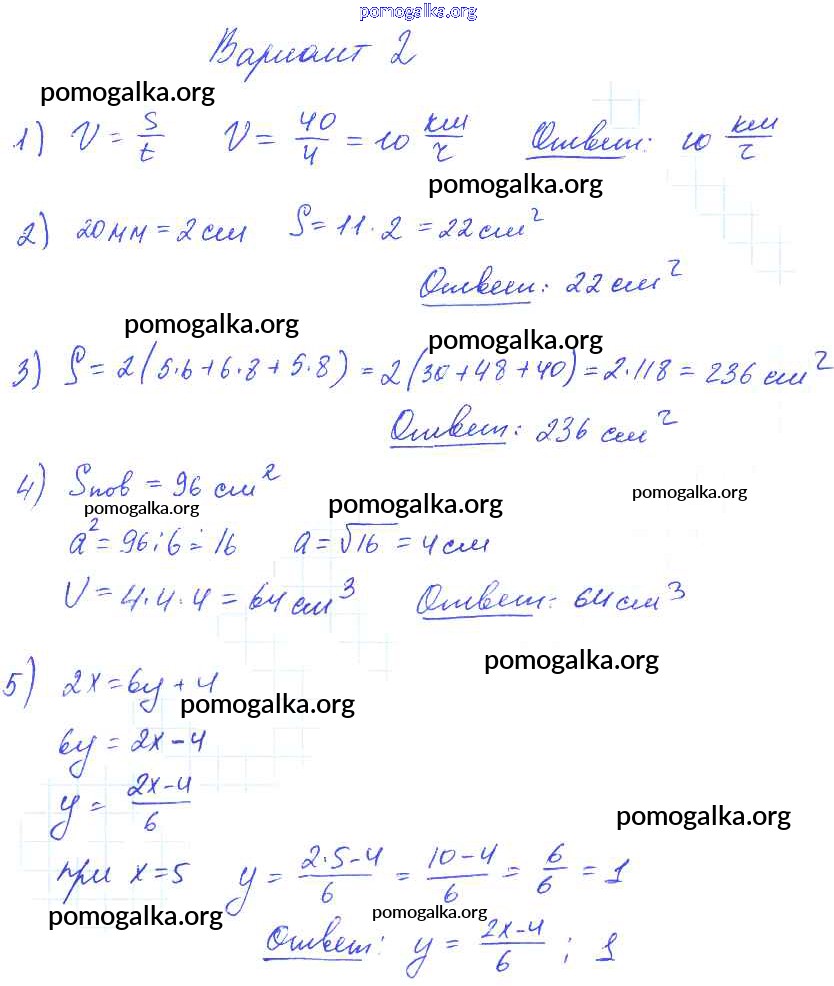 pomogalka.org
Вариант 2
pomogalka.org
1) V = s/t   V = 40/4 = 10 км/ч   Ответ: 10 км/ч
pomogalka.org
2) 20 мм = 2 см   S = 11 · 2 = 22 см²
Ответ: 22 см²
pomogalka.org
pomogalka.org
3) S = 2 (5·6 + 6·8 + 5·8) = 2 (30 + 48 + 40) = 2·118 = 236 см²
Ответ: 236 см²
4) Sпов = 96 см²
pomogalka.org
pomogalka.org
pomogalka.org
a² = 96 : 6 = 16   a = √16 = 4 см
V = 4·4·4 = 64 см³   Ответ: 64 см³
pomogalka.org
5) 2x = 6y + 4
pomogalka.org
6y = 2x - 4
y = (2x-4)/6
pomogalka.org
при x = 5   y = (2·5-4)/6 = (10-4)/6 = 6/6 = 1
pomogalka.org
pomogalka.org
Ответ: y = (2x-4)/6 ; 1